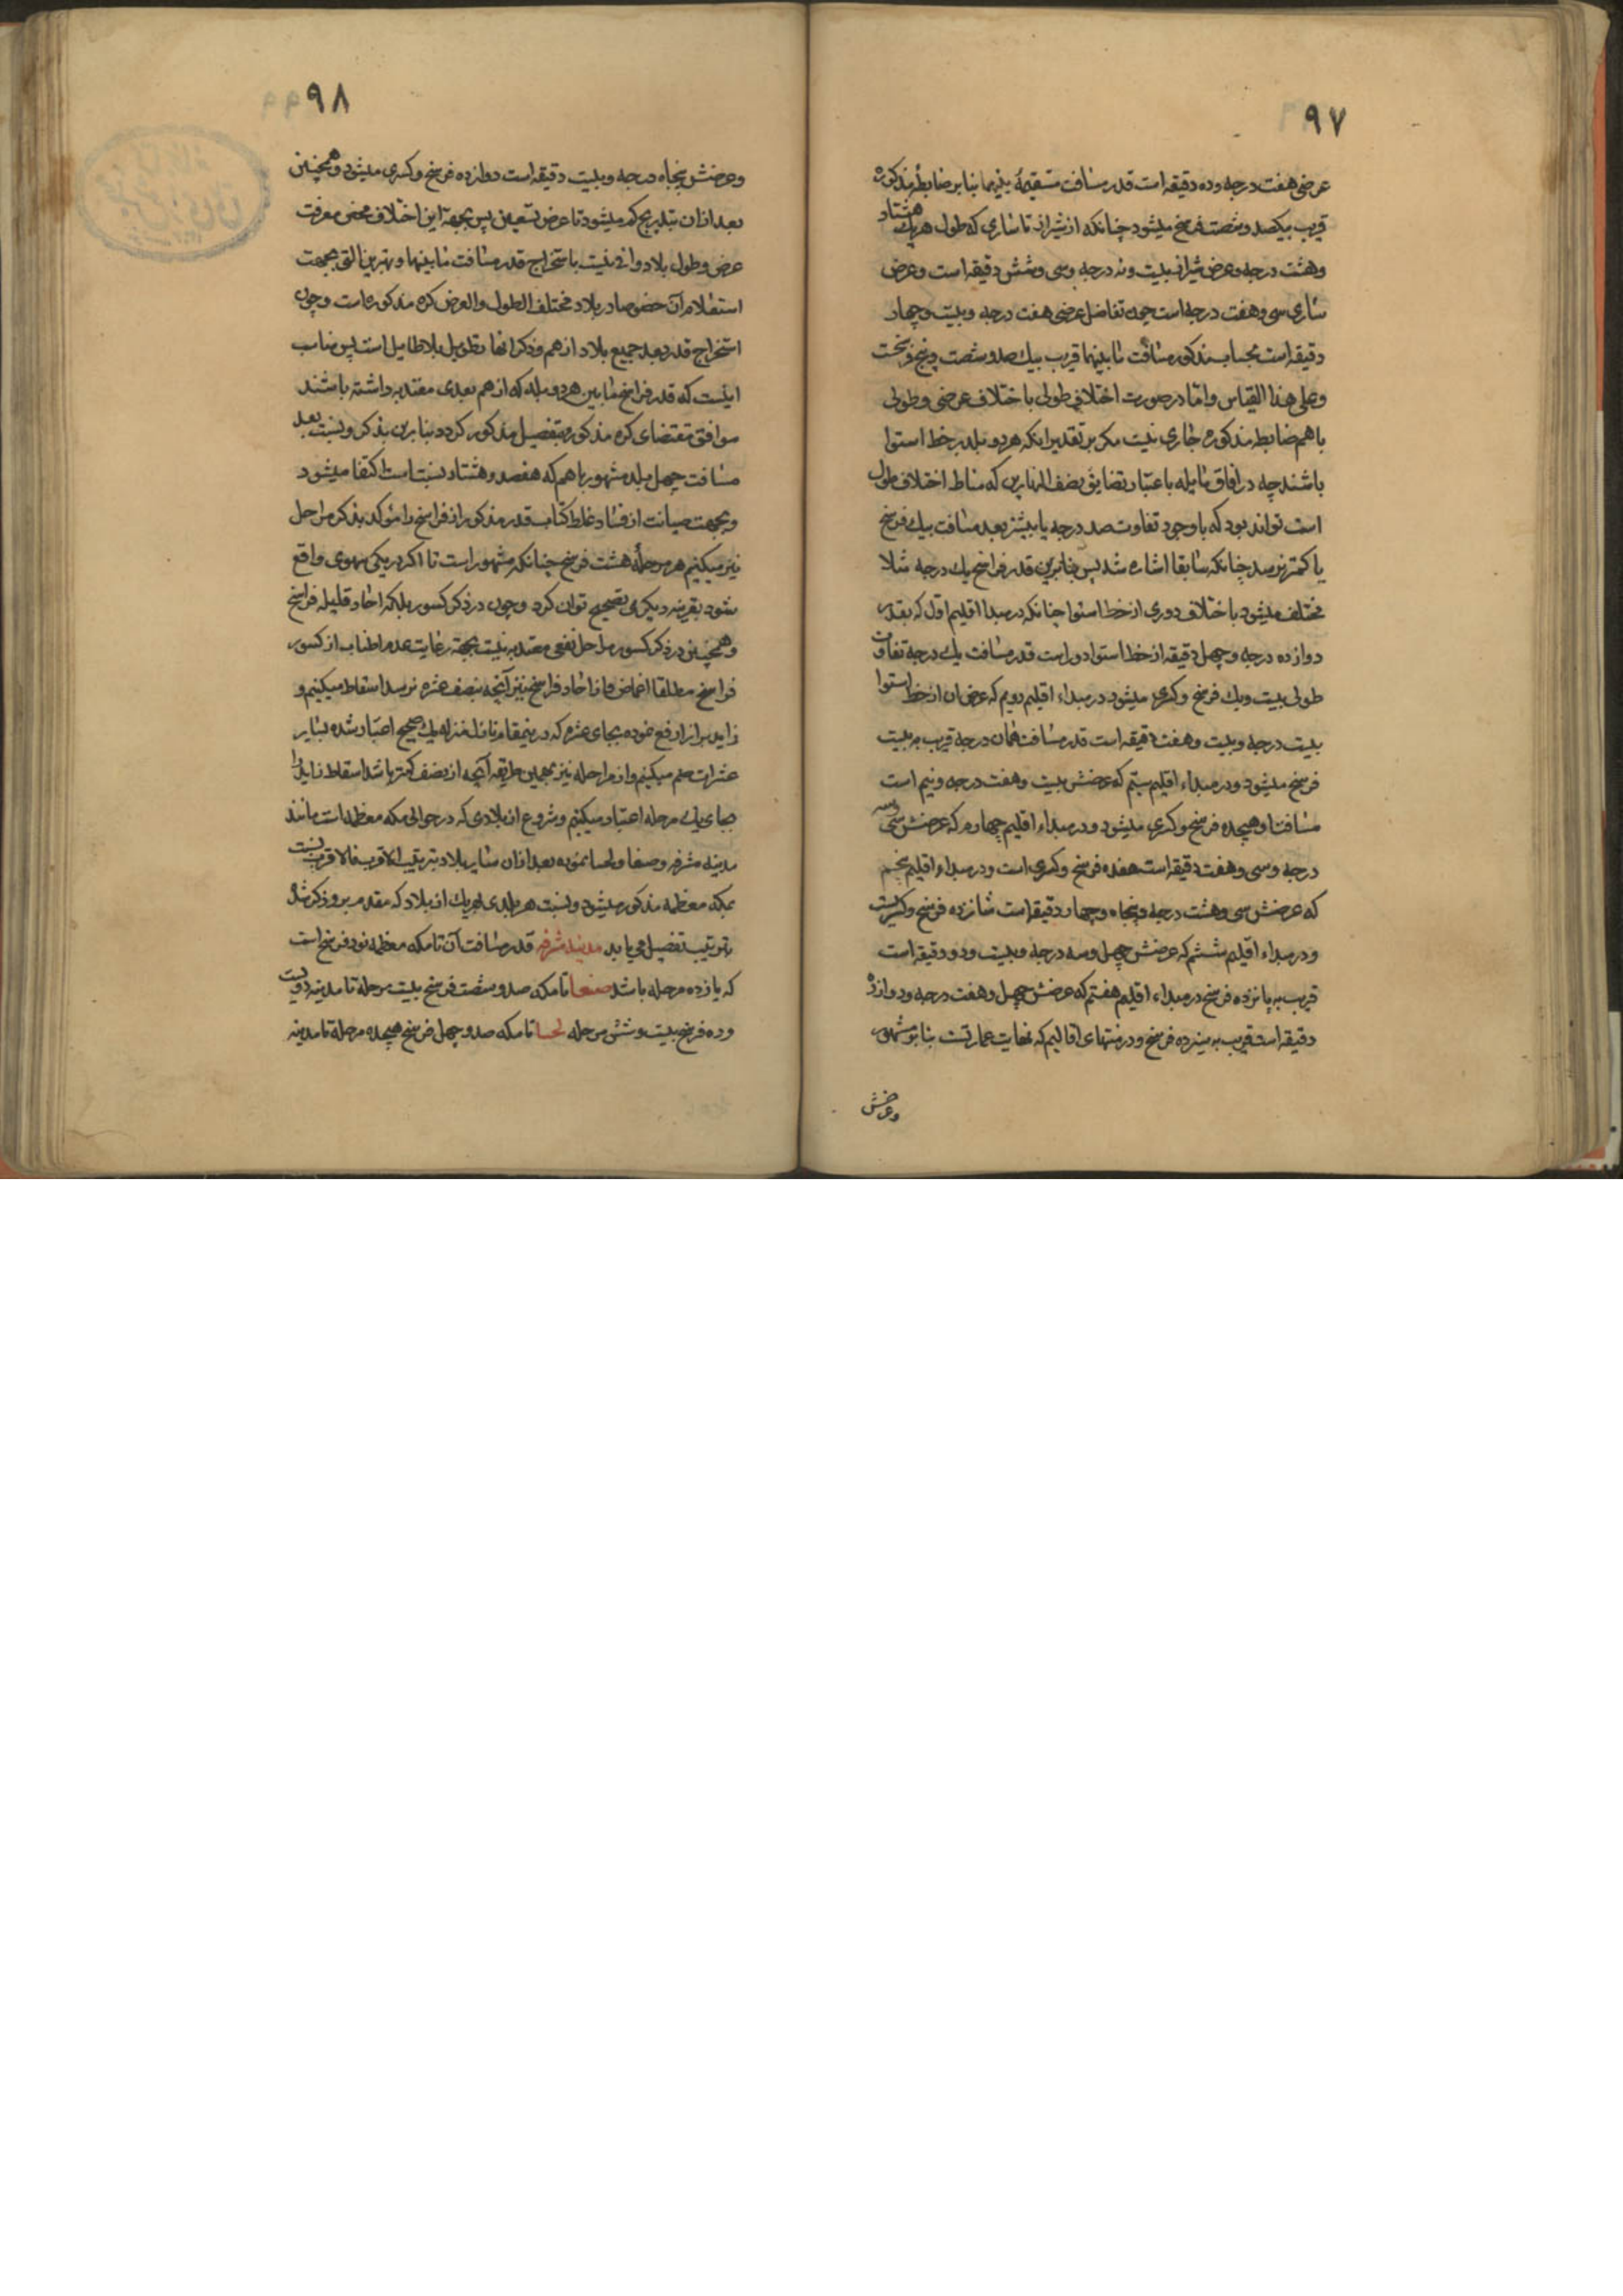 ۹۷
عرضی هفت درجه و ده دقیقه است قدر مسافت مستقیمهٔ بینهما بنا بر ضابطهٔ مذکوره
قریب بیکصد و شصت فرسخ میشود چنانکه از شیراز تا ساری که طول هر یک هشتاد
و هشت درجه و عرض شیراز بیست و نه درجه و سی و شش دقیقه است و عرض
ساری سی و هفت درجه است چون تفاضل عرضی هفت درجه و بیست و چهار
دقیقه است بحساب مذکور مسافت مابینهما قریب بیک صد و شصت و پنج فرسخست
و علی هذا القیاس و اما در صورت اختلاف طولی یا اختلاف عرضی و طولی
با هم ضابطه مذکوره جاری نیست مکر بر تقدیر اینکه هر دو بلد بر خط استوا
باشند چه در افاق مایله باعتبار تضایق نصف النهارین که مناط اختلاف طول
است تواند بود که با وجود تفاوت صد درجه یا بیشتر بعد مسافت بیک فرسخ
یا کمتر نرسد چنانکه سابقا اشاره شد پس بنابرین قدر فراسخ یک درجه مثلا
مختلف میشود باختلاف دوری از خط استوا چنانکه در مبدا اقلیم اول که بقدر
دوازده درجه و چهل دقیقه از خط استوا دور است قدر مسافت یک درجه تفاوت
طولی بیست و یک فرسخ و کسری میشود در مبداء اقلیم دویم که عرض ان از خط استوا
بیست درجه و بیست و هفت دقیقه است قدر مسافت همان درجه قریب به بیست
فرسخ میشود و در مبداء اقلیم سیم که عرضش بیست و هفت درجه و نیم است
مسافت او هیجده فرسخ و کسری میشود و در مبداء اقلیم چهارم که عرضش سی و سه
درجه و سی و هفت دقیقه است هفده فرسخ و کسری است و در مبداء اقلیم پنجم
که عرضش سی و هشت درجه و پنجاه و چهار دقیقه است شانزده فرسخ و کسریست
و در مبداء اقلیم ششم که عرضش چهل و سه درجه و بیست و دو دقیقه است
قریب به پانزده فرسخ در مبداء اقلیم هفتم که عرضش چهل و هفت درجه و دوازده
دقیقه است قریب به سیزده فرسخ و در منتهای اقالیم که نهایت عمارتست بنا بر مشهور
وعرضش
۹۸
وعرضش پنجاه درجه و بیست دقیقه است دوازده فرسخ و کسری میشود و همچنین
بعد از ان بتدریج کم میشود تا عرض تسعین پس بجهة این اختلاف محض معرفت
عرض و طول بلاد وافی نیست باستخراج قدر مسافت مابینها و بهترین التی بجهت
استعلام آن خصوصا در بلاد مختلف الطول و العرض کره مذکوره است و چون
استخراج قدر بعد جمیع بلاد از هم و ذکر انها تطویل بلا طایل است پس مناسب
اینست که قدر فراسخ مابین هر دو بلد که از هم بعدی معتد به داشته باشند
موافق مقتضای کره مذکوره بتفصیل مذکور کردد بنابرین بذکر و نسبت بعد
مسافت چهل بلد مشهور با هم که هفصد و هشتاد نسبت است اکتفا میشود
و بجهت صیانت از فساد غلط کتاب قدر مذکور از فراسخ را مؤکد بذکر مراحل
نیز میکنیم هر مرحلهٔ هشت فرسخ چنانکه مشهور است تا اکر در یکی سهوی واقع
شود بقرینه دیکری تصحیح توان کرد و چون در ذکر کسور بلکه احاد قلیله فراسخ
و همچنین در ذکر کسور مراحل نفعی معتد به نیست بجهة رعایت عدم اطناب از کسور
فراسخ مطلقا اغماض و از احاد فراسخ نیز آنچه بنصف عشره نرسد اسقاط میکنیم و
زاید بر انرا رفع نموده بجای عشره که در ینمقام نازل منزله یک صحیح اعتبار شده بسایر
عشرات ضم میکنیم و از مراحله نیز بهمین طریقه آنچه از نصف کمتر باشد اسقاط زاید را
بجای یک مرحله اعتبار میکنیم و شروع از بلادی که در حوالی مکه معظمه است مانند
مدینه مشرفه و صنعا و لحسا نموده بعد از ان سایر بلاد بترتیب الاقرب فالاقرب نسبت
بمکه معظمه مذکور میشود و نسبت هر بلدی بهر یک از بلاد که مقدم بر و ذکر شد
بترتیب تفصیل می یابد مدینه مشرفه قدر مسافت آن تا مکه معظمه نود فرسخ است
که یازده مرحله باشد صنعا تا مکه صد و شصت فرسخ بیست مرحله تا مدینه دویست
و ده فرسخ بیست و شش مرحله لحسا تا مکه صد و چهل فرسخ هیجده مرحله تا مدینه